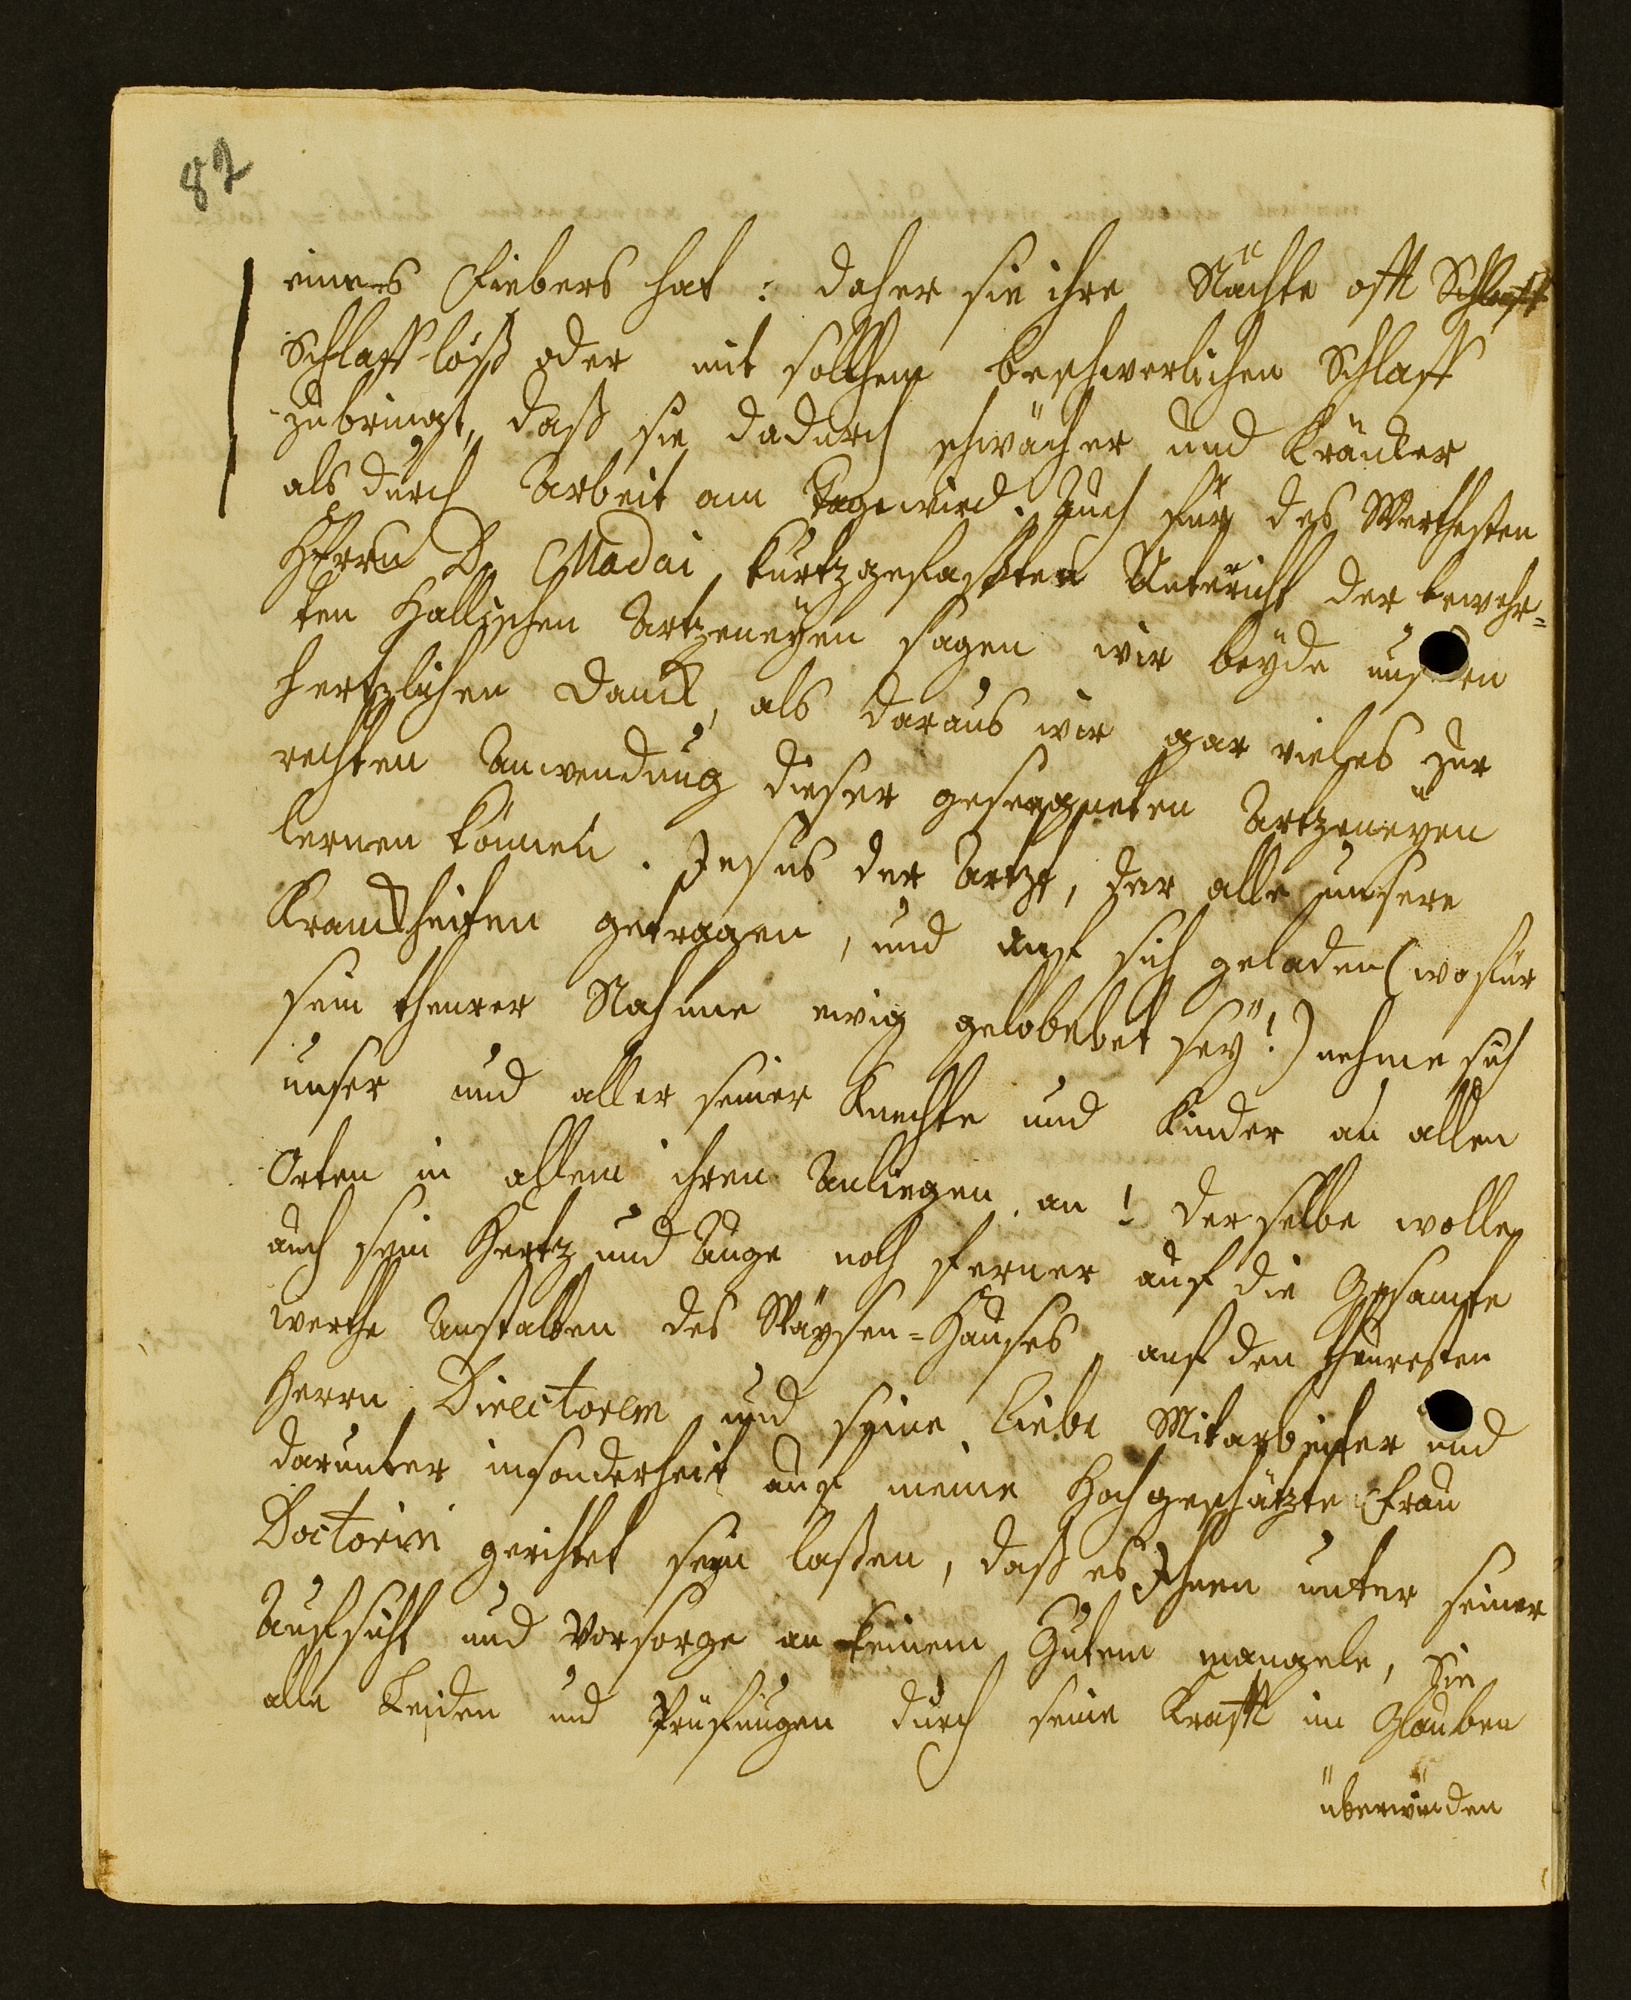 82
eines Fiebers hat: daher sie ihre Nächte offt Schlaff
Schlaff-loß oder mit solchem beschwerlichen Schlaff
zubringt, daß sie dadurch schwächer und Kräncker
als durch Arbeit am Tage wird. Auch für des Werthesten
Herrn D. Madai kurtzgefaßten Untericht der bewehr=
ten Hallischen Artzeneyen sagen wir beyde unsern
hertzlichen Danck, als daraus wir gar vieles zur
rechten Anwendung dieser gesegneten Artzeneyen
lernen können. Jesus der Artzt, der alle unsere
Kranckheiten getragen, und auf sich geladen (wofür
sein theurer Nahme ewig gelobebet sey!) nehme sich
unser und aller seiner Knechte und Kinder an allen
Orten in allem ihren Anliegen an! derselbe wolle
auch sein Hertz und Auge noch ferner auf die Gesamte
werthe Anstalten des Wäysen=Hauses, auf den theuresten
Herrn Directorem und seine liebe Mitarbeiter und
darunter insonderheit auf meine Hochgeschätzte Frau
Doctorin gerichtet seyn laßen, daß es Ihnen unter seiner
Aufsicht und Vorsorge an keinem Gutem mangele, Sie
alle Leiden und Prüfungen durch seine Krafft im Glauben
überwinden